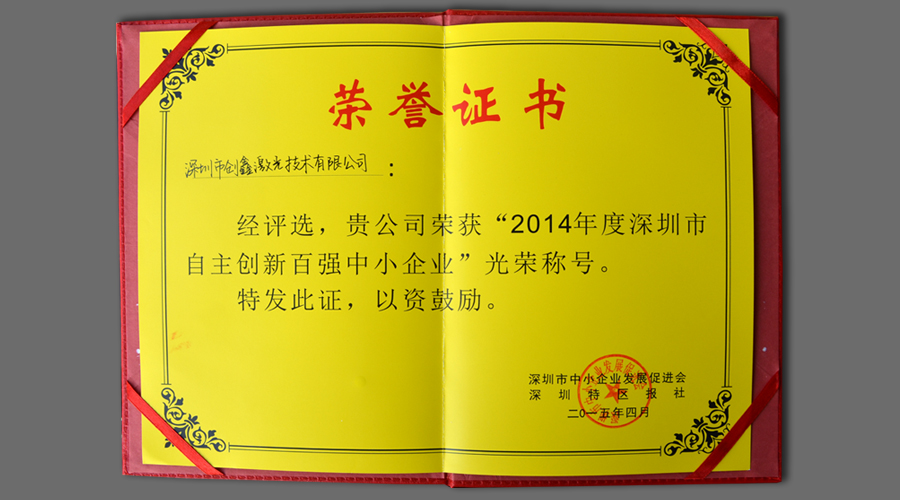 荣誉证书
深圳市创鑫激光技术有限公司：
经评选，贵公司荣获“2014年度深圳市
自主创新百强中小企业”光荣称号。
特发此证，以资鼓励。
深圳市中小企业发展促进会
深圳特区报社
二0一五年四月